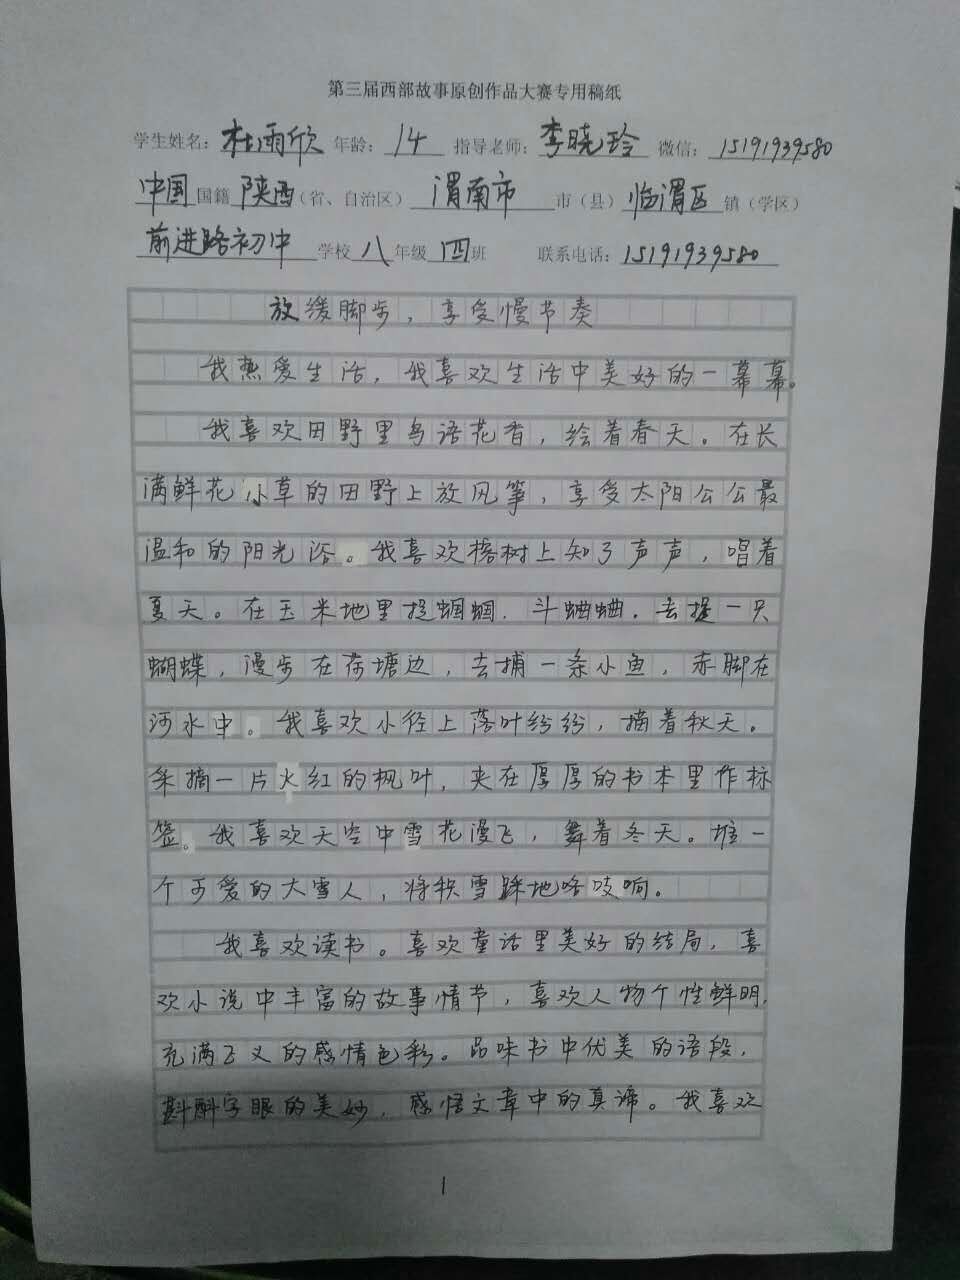 第三届西部故事原创作品大赛专用稿纸
学生姓名：杜雨欣 年龄：14 指导老师：李晓玲 微信：15191939580
中国国籍 陕西（省、自治区） 渭南市 市（县）临渭区 镇（学区）
前进路初中 学校 八 年级 四 班 联系电话：15191939580
放缓脚步，享受慢节奏
我热爱生活，我喜欢生活中美好的一幕幕。
我喜欢田野里鸟语花香，绘着春天。在长
满鲜花小草的田野上放风筝，享受太阳公公最
温和的阳光浴。我喜欢榕树上知了声声，唱着
夏天。在玉米地里捉蝈蝈．斗蛐蛐．去捉一只
蝴蝶，漫步在荷塘边，去捕一条小鱼，赤脚在
河水中。我喜欢小径上落叶纷纷，描着秋天。
采摘一片火红的枫叶，夹在厚厚的书本里作标
签。我喜欢天空中雪花漫飞，舞着冬天。堆一
个可爱的大雪人，将积雪踩地咯吱响。
我喜欢读书。喜欢童话里美好的结局，喜
欢小说中丰富的故事情节，喜欢人物个性鲜明，
充满飞义的感情色彩。品味书中优美的语段，
斟酌字眼的美妙，感悟文章中的真谛。我喜欢
1